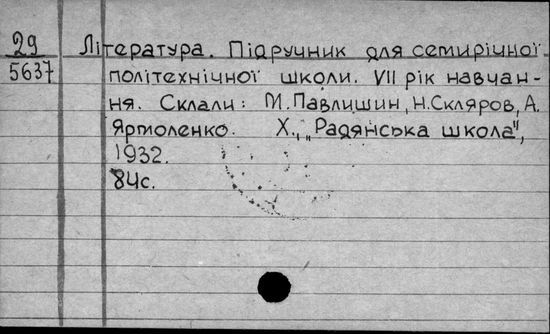 29
5637
Література. Підручник для семирічної
політехнічної школи. VII рік навчан-
ня. Склали: М. Павлишин, Н. Скляров, А.
Ярмоленко. Х., „Радянська школа",
1932.
84с.